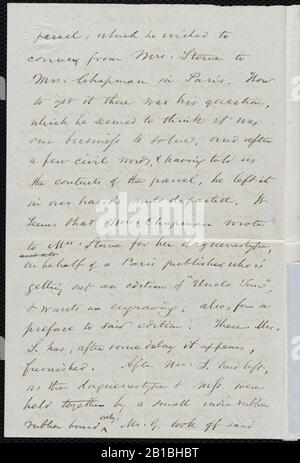 parcel, which he wished to
convey from Mrs. Stowe to
Mrs. Chapman in Paris. How
to get it there was his question,
which he seemed to think it was
our business to solve, and after
a few civil words, & having told us
the contents of the parcel, he left it
in our hands and departed. It
seems that Mrs. Chapman wrote
to Mrs. Stowe for her daguerreotype,
on behalf of a Paris publisher who is
getting out an edition of "Uncle Tom"
& wants an engraving; also, for a
preface to said edition. These Mrs.
S. has, after some delay it appears,
furnished. After Mr. S. had left,
as the daguerreotype & mss. were
held together by a small india rubber
rubber band only, Mr. G. took off said
alamy
Image ID: 2B1BHBT
www.alamy.com